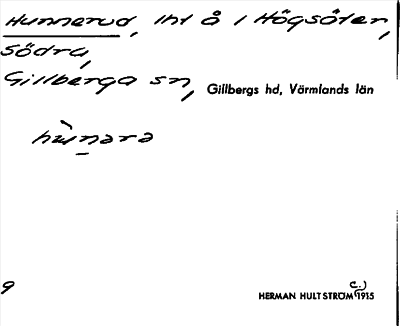 Hunnerud, lht å i Högsäter,
Södra,
Gillberga sn, Gillbergs hd, Värmlands län
hùnara
9
c.)
HERMAN HULTSTRÖM 1915